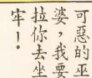 可惡的巫
婆，我要
拉你去坐
牢！